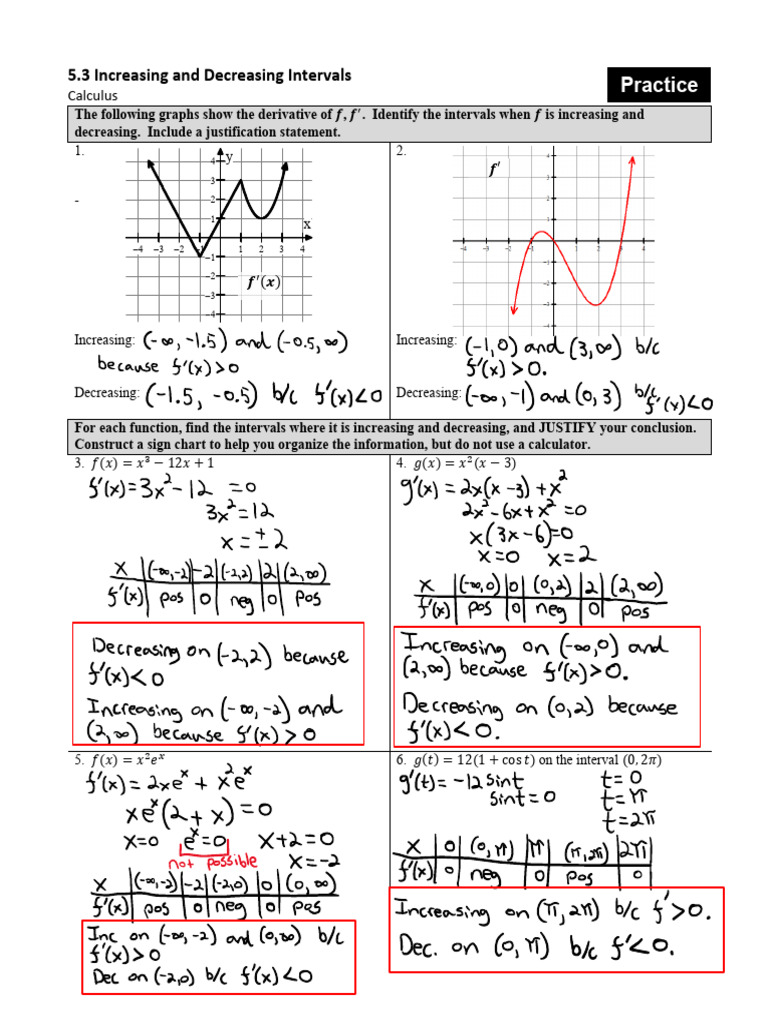 5.3 Increasing and Decreasing Intervals
Calculus
Practice
The following graphs show the derivative of f, f′. Identify the intervals when f is increasing and
decreasing. Include a justification statement.
1.
-
y
x
4
3
2
1
-1
-2
-3
-4
-4 -3 -2 -1 1 2 3 4
f′(x)
Increasing: (-∞, -1.5) and (-0.5, ∞)
because f′(x)>0
Decreasing: (-1.5, -0.5) b/c f′(x)<0
2.
f′
Increasing: (-1,0) and (3,∞) b/c
f′(x)>0.
Decreasing: (-∞,-1) and (0,3) b/c f′(x)<0
For each function, find the intervals where it is increasing and decreasing, and JUSTIFY your conclusion.
Construct a sign chart to help you organize the information, but do not use a calculator.
3. f(x) = x³ − 12x + 1
f′(x)=3x²-12 =0
3x²=12
x=±2
x (-∞,-2) -2 (-2,2) 2 (2,∞)
f′(x) pos 0 neg 0 pos
Decreasing on (-2,2) because
f′(x)<0
Increasing on (-∞,-2) and
(2,∞) because f′(x)>0
4. g(x) = x²(x − 3)
g′(x) = 2x(x-3)+x²
2x²-6x+x²=0
x(3x-6)=0
x=0 x=2
x (-∞,0) 0 (0,2) 2 (2,∞)
f′(x) pos 0 neg 0 pos
Increasing on (-∞,0) and
(2,∞) because f′(x)>0.
Decreasing on (0,2) because
f′(x)<0.
5. f(x) = x²eˣ
f′(x) = 2xeˣ + x²eˣ
xeˣ(2+x)=0
x=0 eˣ=0 x+2=0
not possible x=-2
x (-∞,-2) -2 (-2,0) 0 (0,∞)
f′(x) pos 0 neg 0 pos
Inc on (-∞,-2) and (0,∞) b/c
f′(x)>0
Dec on (-2,0) b/c f′(x)<0
6. g(t) = 12(1 + cos t) on the interval (0, 2π)
g′(t) = -12 sint t=0
sint=0 t=π
t=2π
x 0 (0,π) π (π,2π) 2π
f′(x) 0 neg 0 pos 0
Increasing on (π,2π) b/c f′>0.
Dec. on (0,π) b/c f′<0.